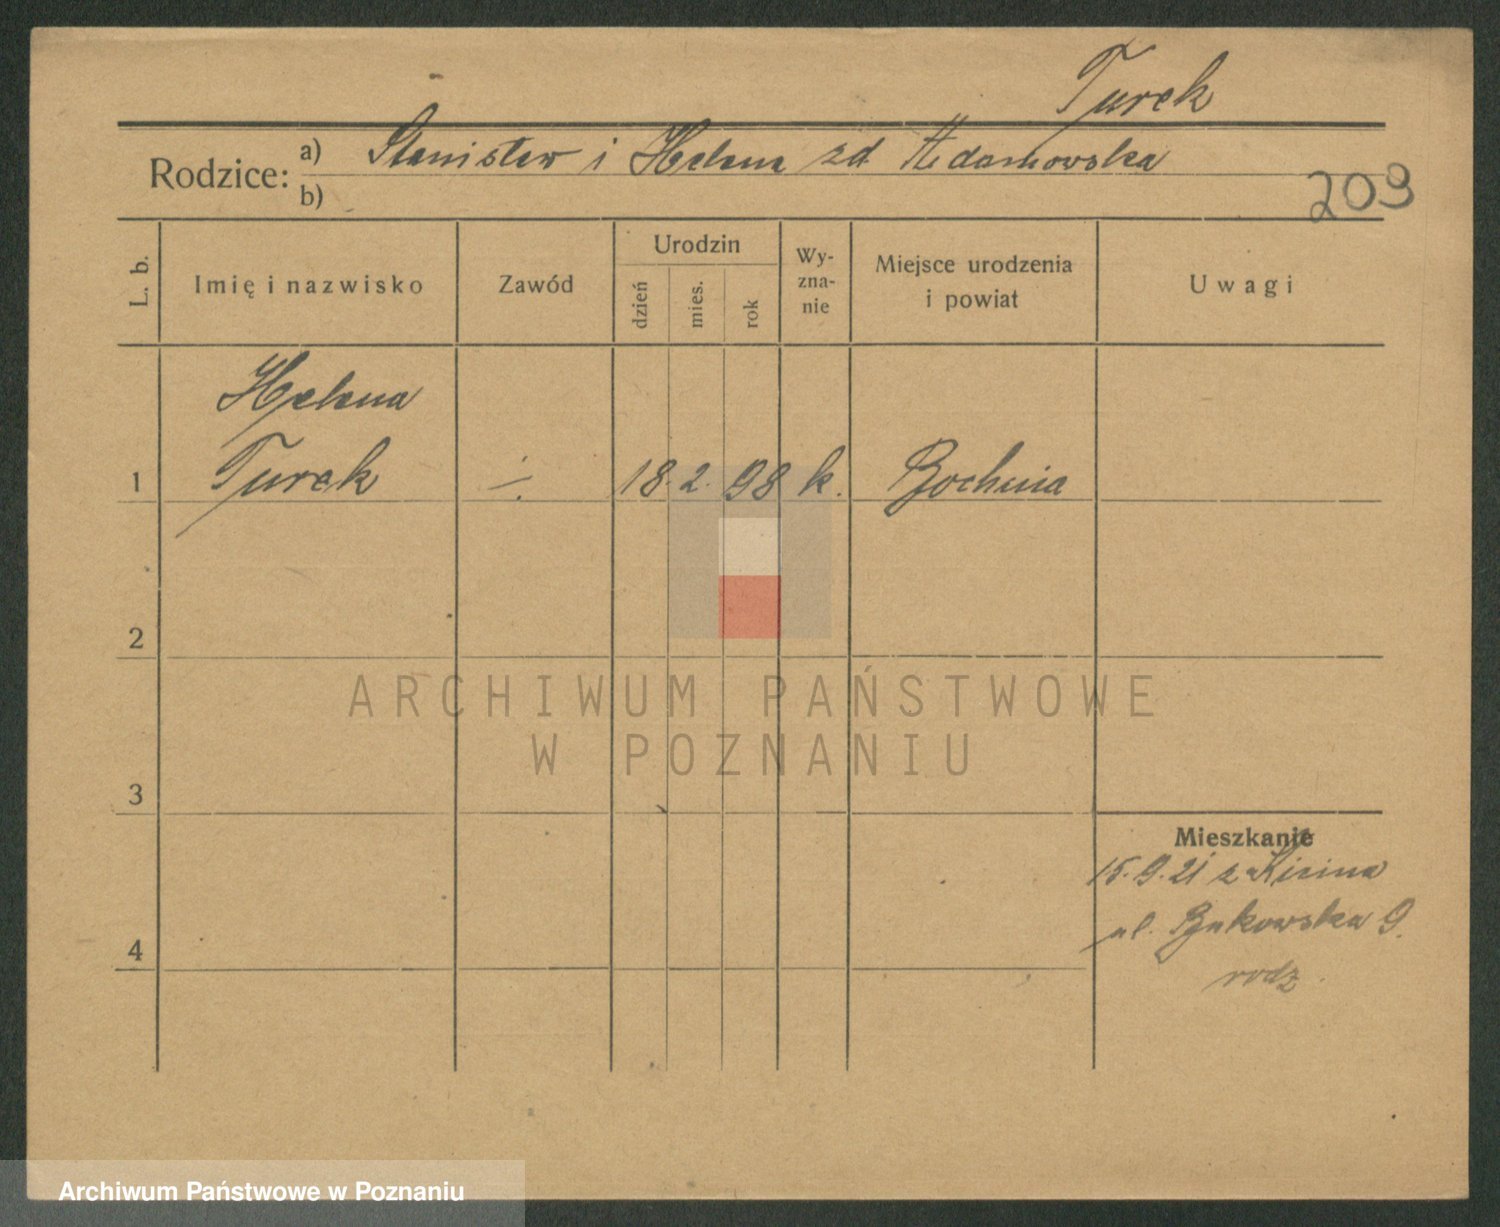 Turek
Rodzice: a) Stanisław i Helena zd Adamowska
b)
209
L. b. Imię i nazwisko Zawód Urodzin dzień mies. rok Wy-zna-nie Miejsce urodzenia i powiat Uwagi
Helena
1 Turek ./. 18. 2. 98 k. Bochnia
2
ARCHIWUM PAŃSTWOWE
W POZNANIU
3
Mieszkanie
15.9.21 z
ul. Bukowska 9.
4
rodz.
Archiwum Państwowe w Poznaniu